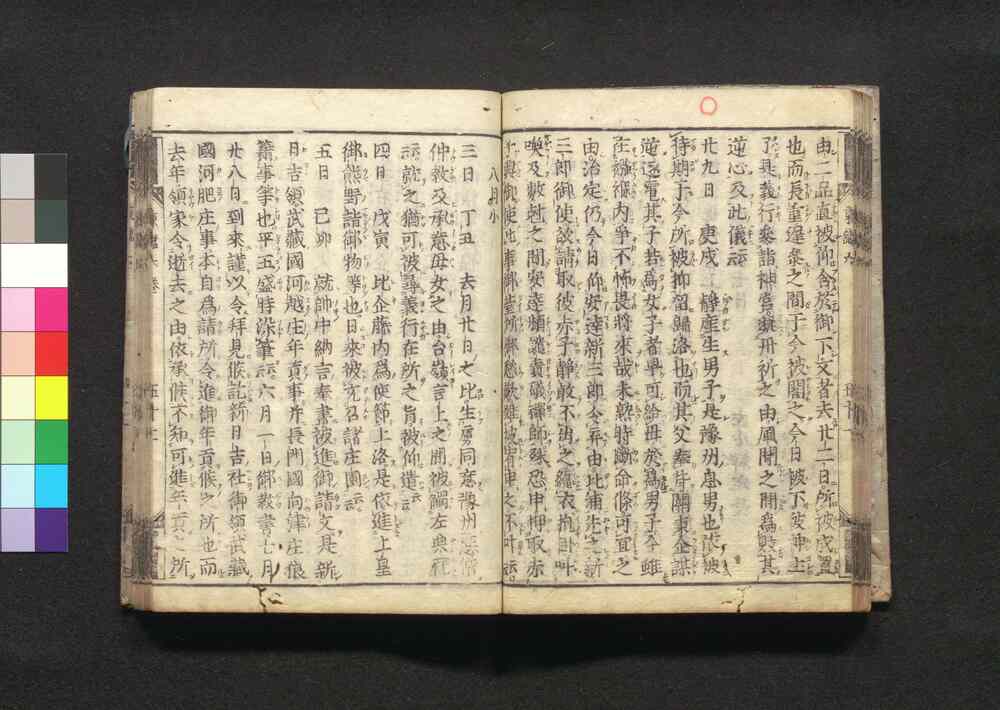 由二品直被仰含於御下文者去廿二日所被成置
也而民重遲參之間于今被閣之今日被下安神上
了是義行參詣神宮祈所之由風聞之間爲
逆心及此儀云云
廿九日 庚戌 靜産生男子是豫州息男也依被
待期于今所被抑留歸洛也而其父奉背關東企謀
逆逐電其子若爲女子者早可給母於爲男子今雖
在襁褓内爭不怖畏將來哉未熟時斷命條可宜之
由治定仍今日仰安達新三郎令弃由比浦先之新
三郎御使欲請取彼赤子靜敢不出之纏衣抱臥叫
喚及數剋之間安達頻譴責礒禪師殊恐申押取赤
子與御使此事御臺所御愁歎雖被宥申之不叶云云
八月小
三日 丁丑 去月廿日之比生虜同意豫州惡僧
仲教及承意母女之由台嶺言上之間被觸左典厩
云云就之猶可被尋義行在所之旨被仰遣云云
四日 戊寅 比企藤内爲使節上洛是依進上皇
御熊野詣御物等也日來被充召諸庄園云云
五日 己卯 就帥中納言奉書被進御請文是新
日吉領武藏國河越庄年貢事并長門國向津庄狼
籍事等也平五盛時染筆云云六月一日御教書七月
廿八日到來謹以令拜見候訖新日吉社御領武藏
國河肥庄事本自爲請所令進御年貢候之所也而
去年領家令逝去之由依承候不知可進年貢之所